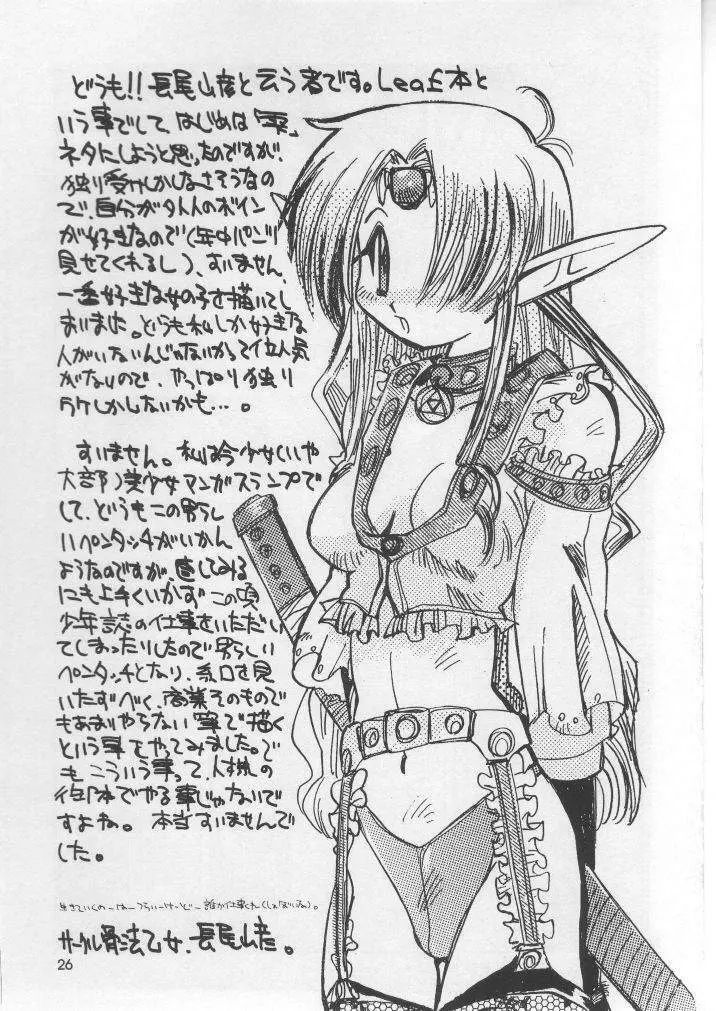 どうも!!長尾山彦と云う者です。Leaf本と
いう事でして、はじめは「雫」
ネタにしようと思ったのですが、
独り受けしかしなさそうなの
で、自分が外人のボイン
が好きなので(年中パンツ
見せてくれるし)、すいません、
一番好きな女の子を描いてし
まいました。どうも私しか好きな
人がいないんじゃないかって位人気
がないので、やっぱり独り
ウケしかしないかも…。
すいません。私は今少女(いや
大部)美少女マンガスランプで
して、どうもこの男らし
いペンタッチがいかん
ようなのですが直してみる
にも上手くいかずこの頃
少年誌の仕事をいただい
てしまったりしたので男らしい
ペンタッチとなり、糸口を見
いだすべく、商業そのもので
もあまりやらない事で描く
という事をやってみました。で
もこういう事って、人様の
本でやる事じゃないで
すよね。本当すいませんで
した。
生きていくのーはーつらいーけーどー誰か仕事くれー
サークル骨法乙女、長尾山彦。
26